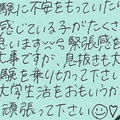 験に不安をもっていた
感じている子がたくさ
思います〰〰緊張感を
大事ですが、息抜きも大
験を乗り切って下さい
大学生活をおもいうか
頑張って下さい☺♡